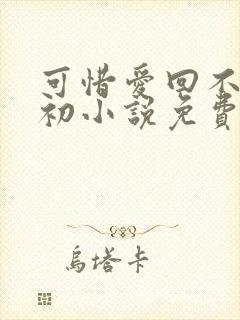 可惜愛回不
初小說免費
烏塔卡